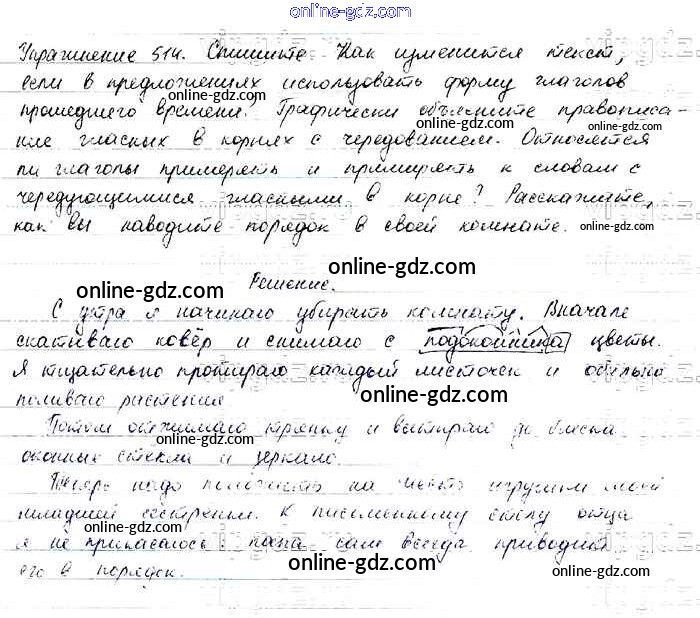 online-gdz.com
Упражнение 514. Спишите. Как изменится текст,
если в предложениях использовать форму глаголов
прошедшего времени. Графически объясните правописа-
ние гласных в корнях с чередованием. Относятся
ли глаголы примерять и примирять к словам с
чередующимися гласными в корне? Расскажите,
как вы наводите порядок в своей комнате.
Решение.
С утра я начинаю убирать комнату. Вначале
скатываю ковёр и снимаю с подоконника цветы.
Я тщательно протираю каждый листочек и обильно
поливаю растения.
Потом отжимаю тряпку и вытираю до блеска
оконные стекла и зеркало.
Теперь надо положить на место игрушки моей
младшей сестрёнки. К письменному столу отца
я не прикасаюсь: папа сам всегда приводит
его в порядок.